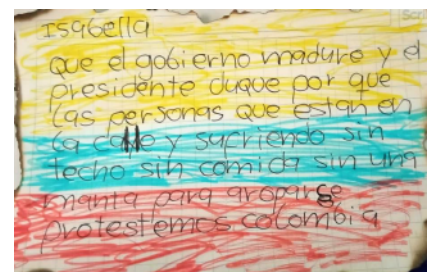 Isabella
que el gobierno maduro y el
presidente duque por que
las personas que estan en
la calle y sufriendo sin
techo sin comida sin una
manta para aroparse
protestemos colombia